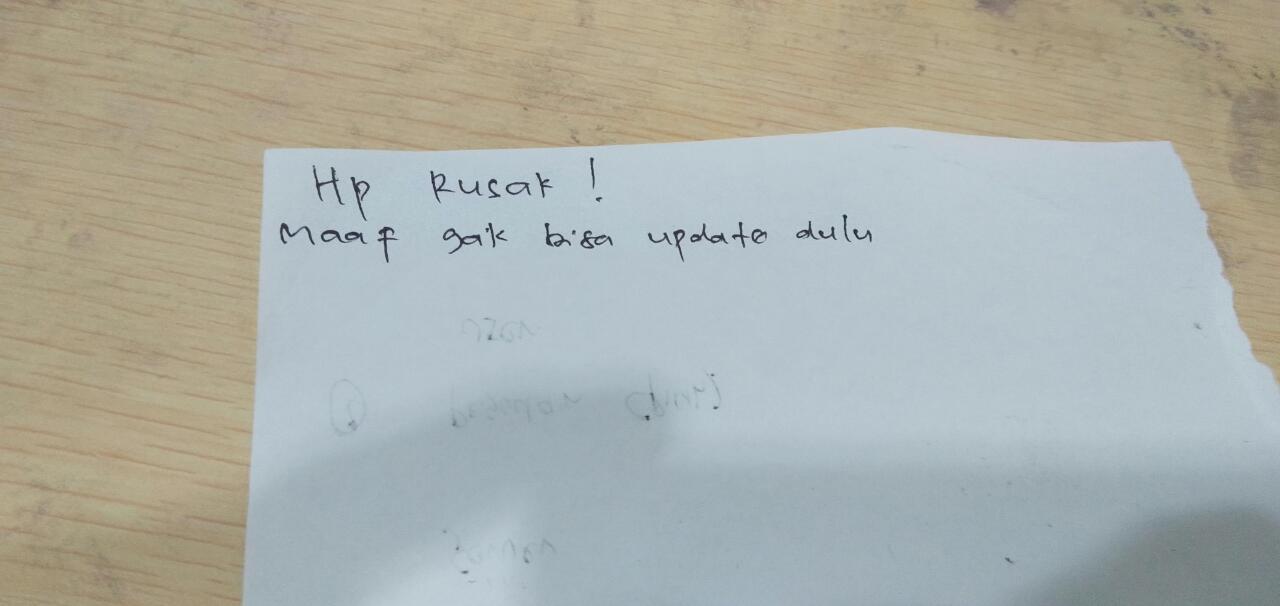 Hp Rusak !
Maaf gak bisa update dulu